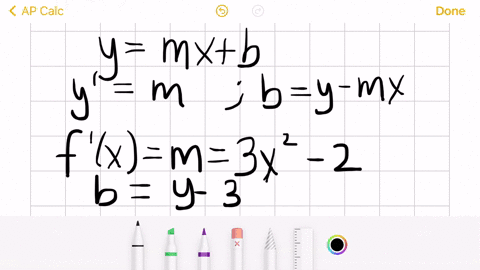 AP Calc Done
y = mx+b
y' = m ; b = y - mx
f'(x) = m = 3x² - 2
b = y - 3